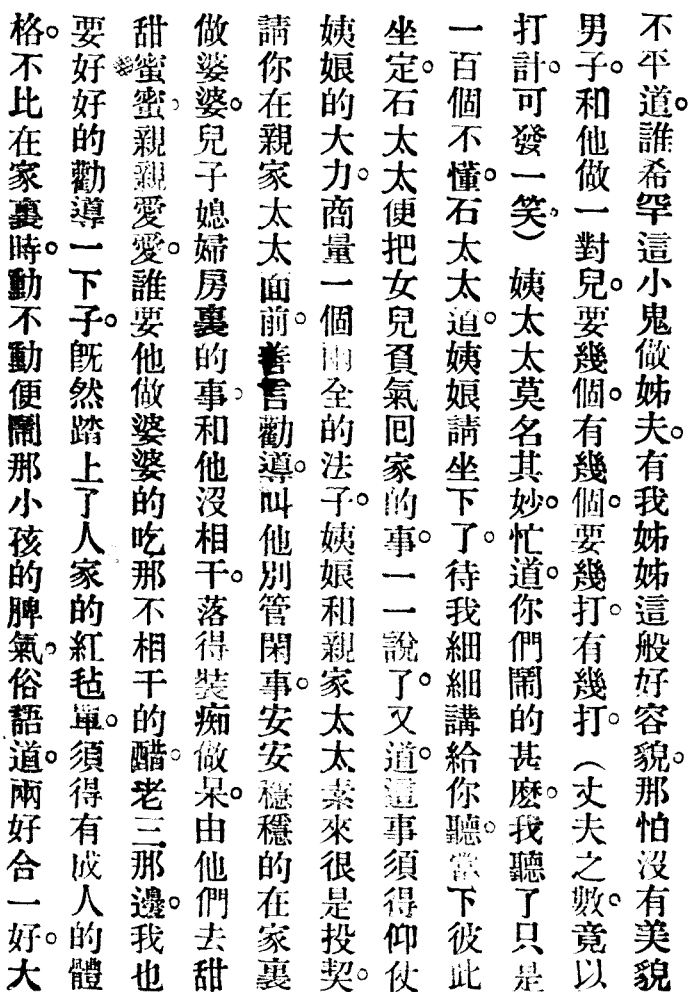 不平道。誰希罕這小鬼做姊夫。有我姊姊這般好容貌。那怕沒有美貌
男子。和他做一對兒。要幾個。有幾個。要幾打。有幾打。（丈夫之數。竟以
打計。可發一笑。）姨太太莫名其妙。忙道。你們鬧的甚麽。我聽了只是
一百個不懂。石太太道。姨娘請坐下了。待我細細講給你聽。當下彼此
坐定。石太太便把女兒負氣回家的事。一一說了。又道。這事須得仰仗
姨娘的大力。商量一個兩全的法子。姨娘和親家太太素來很是投契。
請你在親家太太面前。善言勸導。叫他別管閑事。安安穩穩的在家裏
做婆婆。兒子媳婦房裏的事。和他沒相干。落得裝痴做呆。由他們去甜
甜蜜蜜。親親愛愛。誰要他做婆婆的吃那不相干的醋。老三那邊。我也
要好好的勸導一下子。旣然踏上了人家的紅毡單。須得有成人的體
格。不比在家裏時。動不動便鬧那小孩的脾氣。俗語道。兩好合一好。大